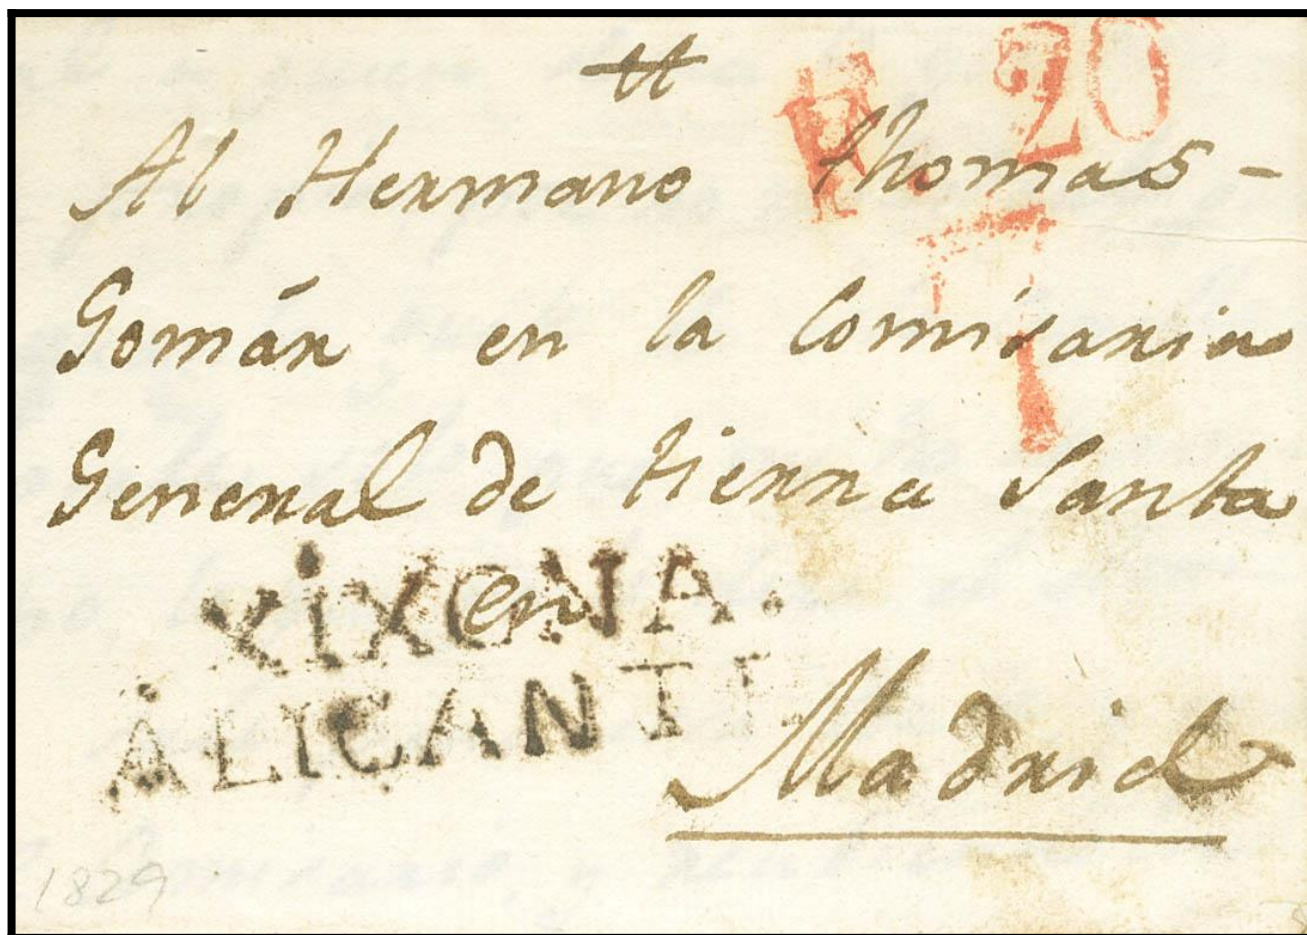 R. 20
Al Hermano Thomas -
7
Gomár en la Comisaria
General de tierra Santa
en
XIXONA.
ALICANTE.
Madrid
1829